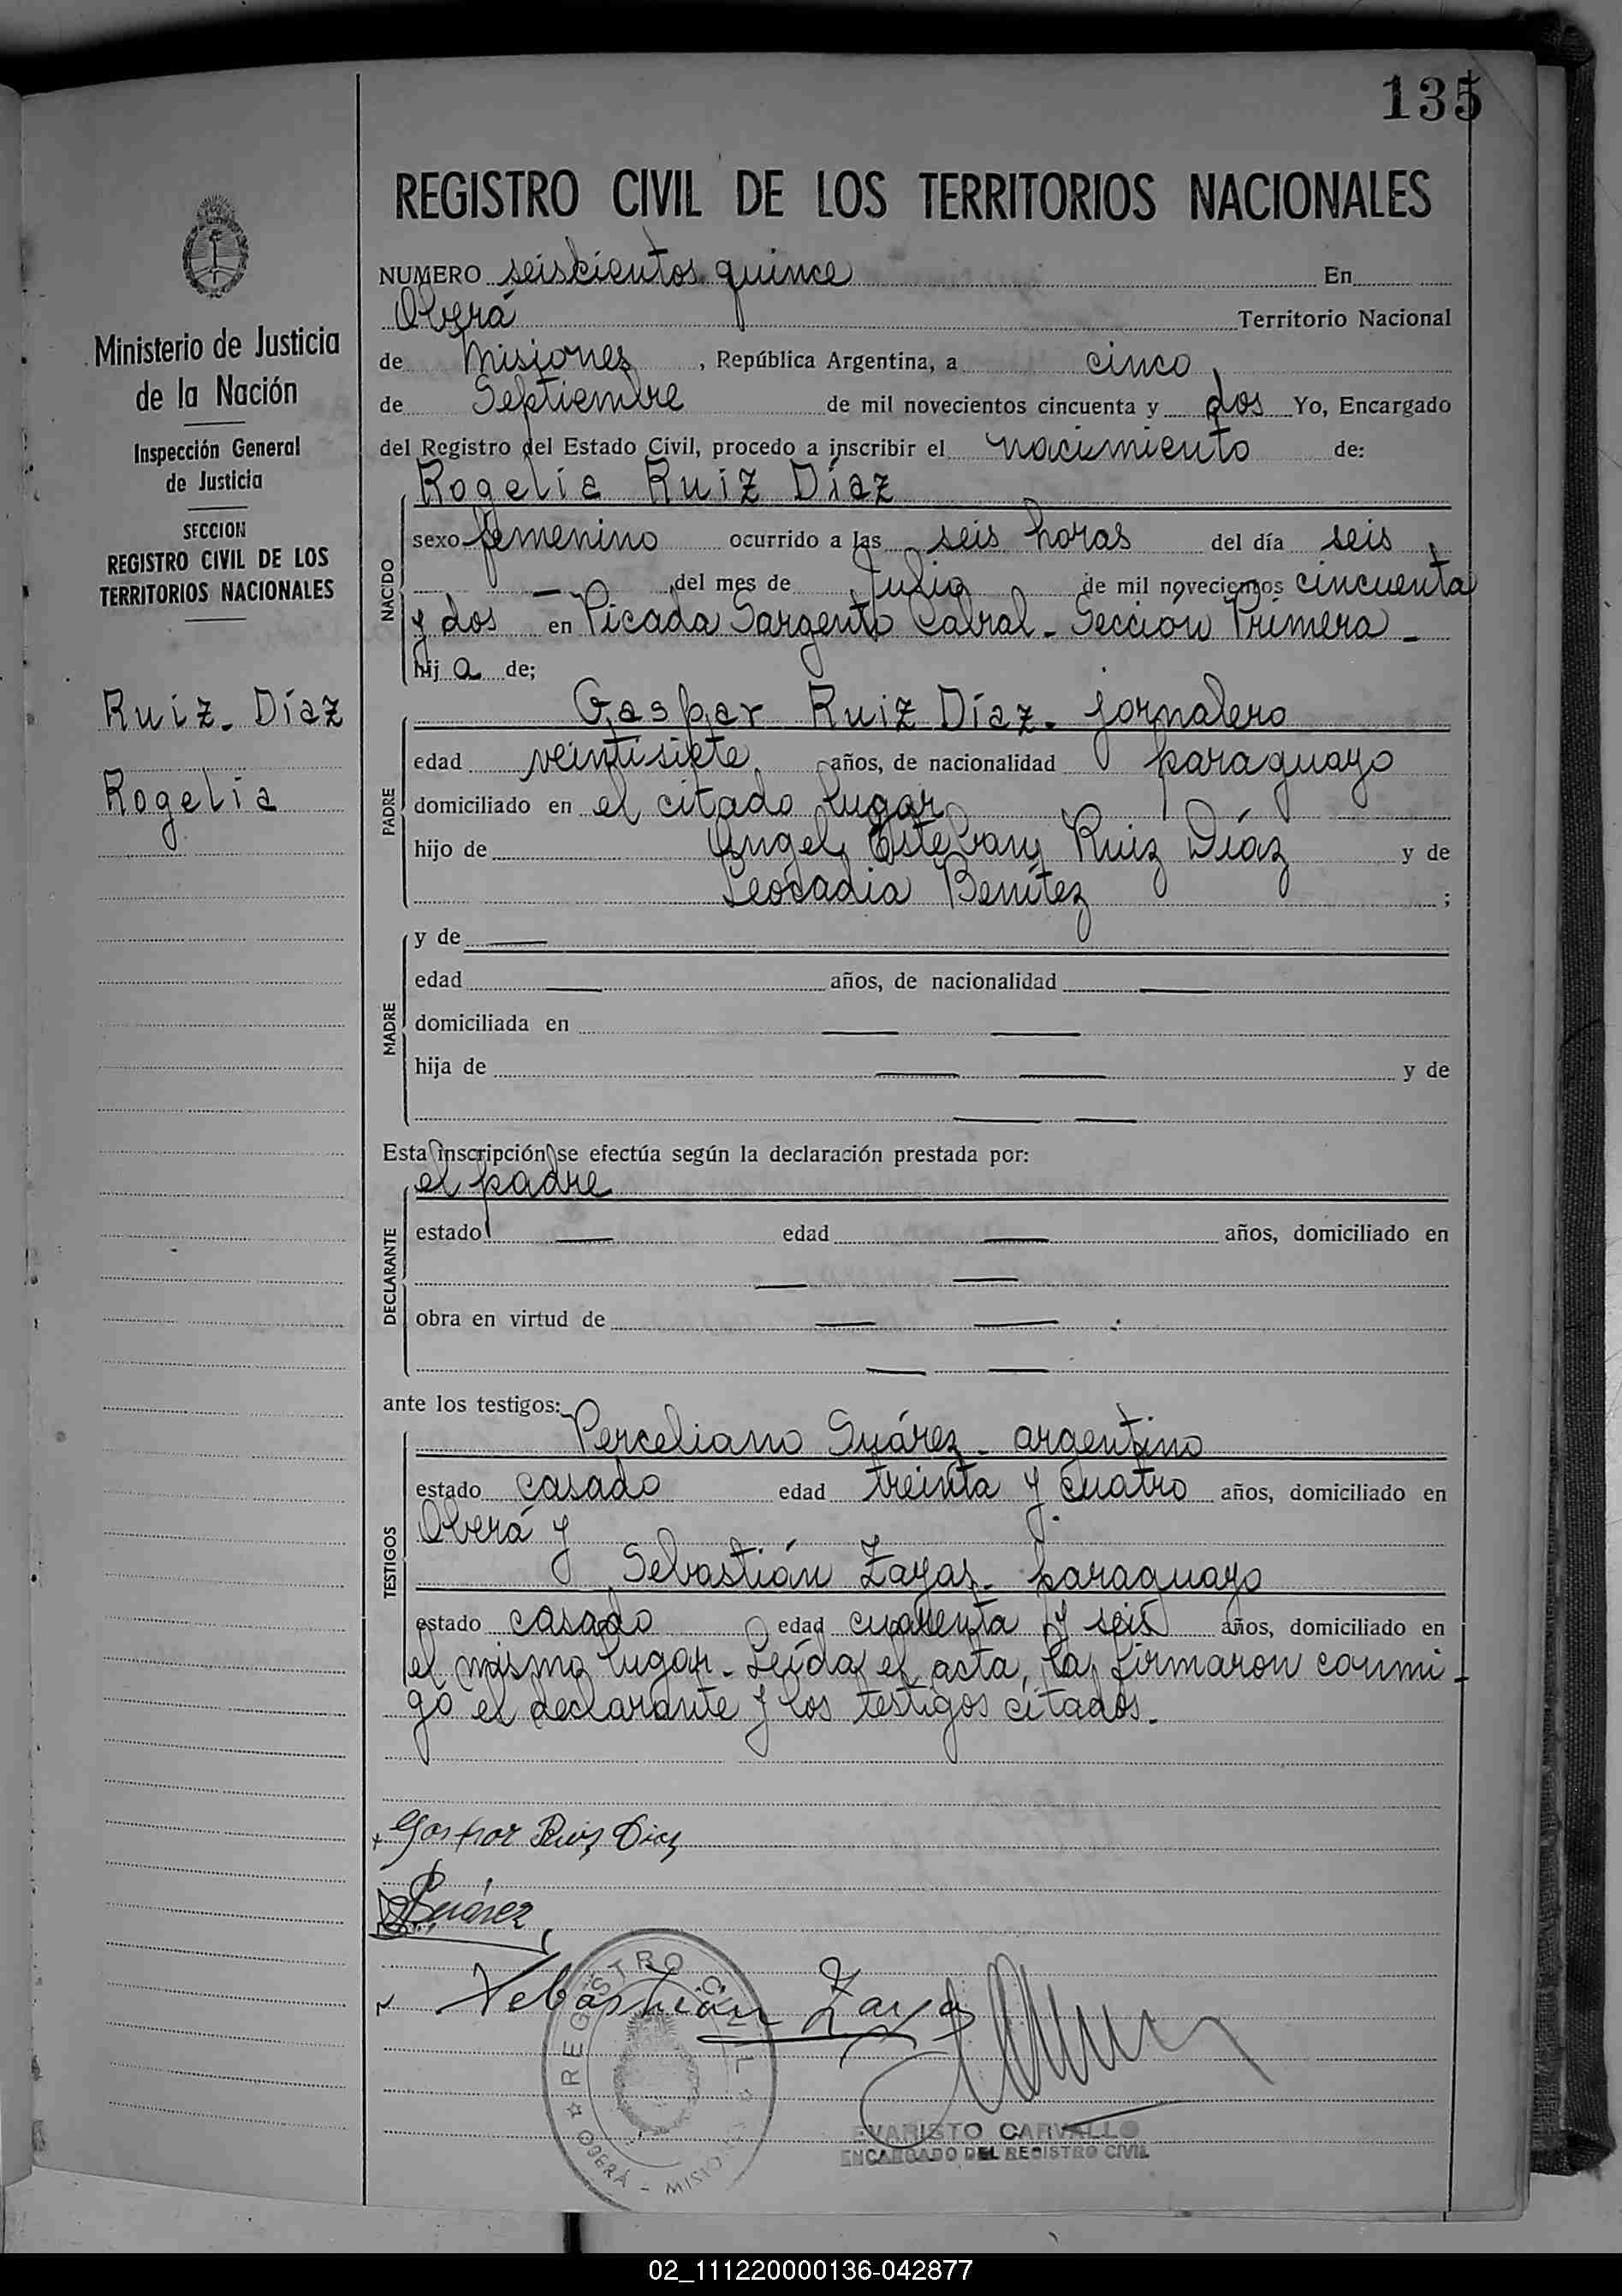 135
REGISTRO CIVIL DE LOS TERRITORIOS NACIONALES
Ministerio de Justicia
de la Nación
Inspección General
de Justicia
SECCION
REGISTRO CIVIL DE LOS
TERRITORIOS NACIONALES
Ruiz - Díaz
Rogelia
NUMERO seiscientos quince En
Oberá Territorio Nacional
de Misiones, República Argentina, a cinco
de Septiembre de mil novecientos cincuenta y dos Yo, Encargado
del Registro del Estado Civil, procedo a inscribir el nacimiento de:
Rogelia Ruiz Díaz
NACIDO
sexo femenino ocurrido a las seis horas del día seis
— del mes de Julio de mil novecientos cincuenta
y dos en Picada Sargento Cabral - Sección Primera -
hija de;
Gaspar Ruiz Díaz - jornalero
PADRE
edad veintisiete años, de nacionalidad paraguayo
domiciliado en el citado lugar
hijo de Angel Esteban Ruiz Díaz y de
Leocadia Benítez ;
MADRE
y de —
edad — años, de nacionalidad —
domiciliada en — —
hija de — — y de
— —
Esta inscripción se efectúa según la declaración prestada por:
el padre
DECLARANTE
estado — edad — años, domiciliado en
— —
obra en virtud de — —
— —
ante los testigos:
Perceliano Suárez - argentino
TESTIGOS
estado casado edad treinta y cuatro años, domiciliado en
Oberá y
Sebastián Zayas - paraguayo
estado casado edad cuarenta y seis años, domiciliado en
el mismo lugar - Leída el acta, la firmaron conmi-
go el declarante y los testigos citados.
Gaspar Ruiz Diaz
Suárez
Sebastián Zayas
REGISTRO CIVIL
OBERÁ - MISIONES
EVARISTO CARVALLO
ENCARGADO DEL REGISTRO CIVIL
02_111220000136-042877